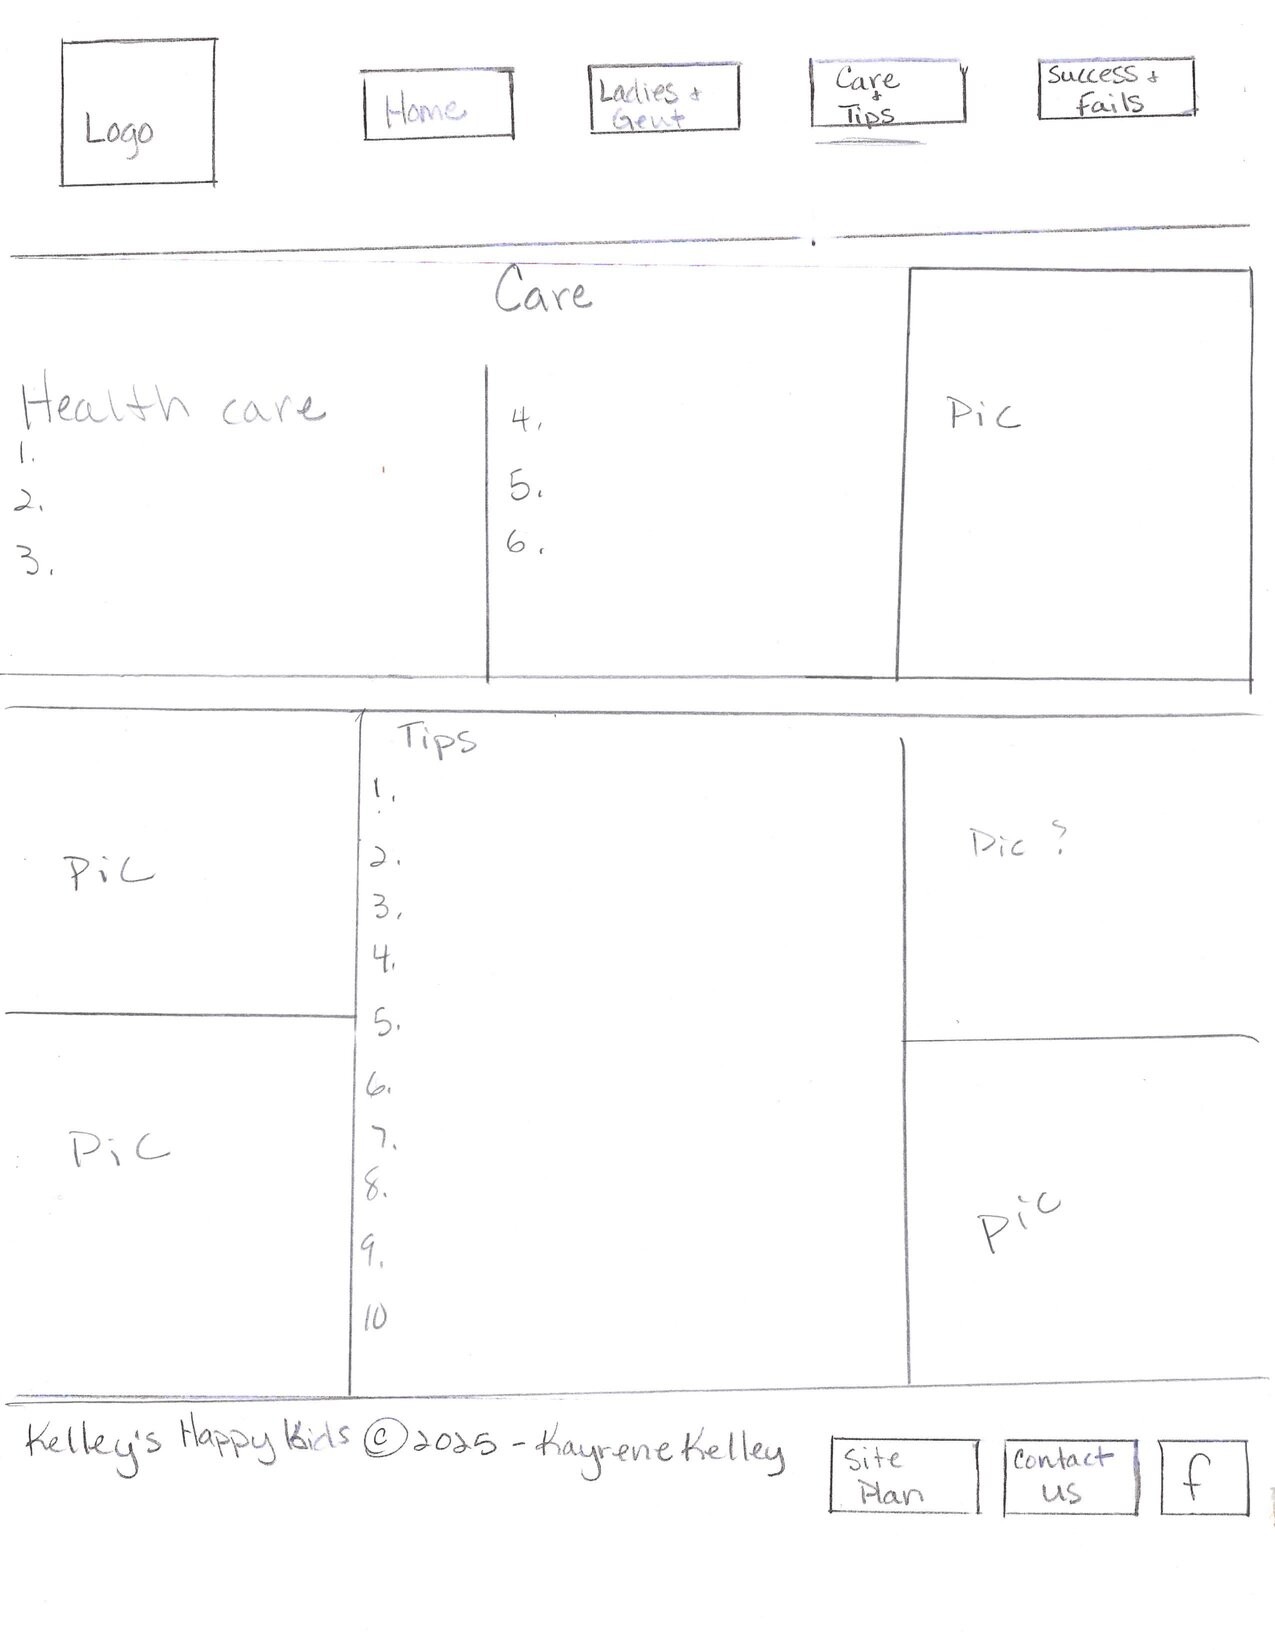 Logo
Home
Ladies &
Gent
Care
&
Tips
Success &
Fails
Care
Health care
1.
2.
3.
4.
5.
6.
Pic
Pic
Pic
Tips
1.
2.
3.
4.
5.
6.
7.
8.
9.
10
Pic ?
Pic
Kelley's Happy Kids © 2025 - Kayrene Kelley
Site
Plan
Contact
us
f